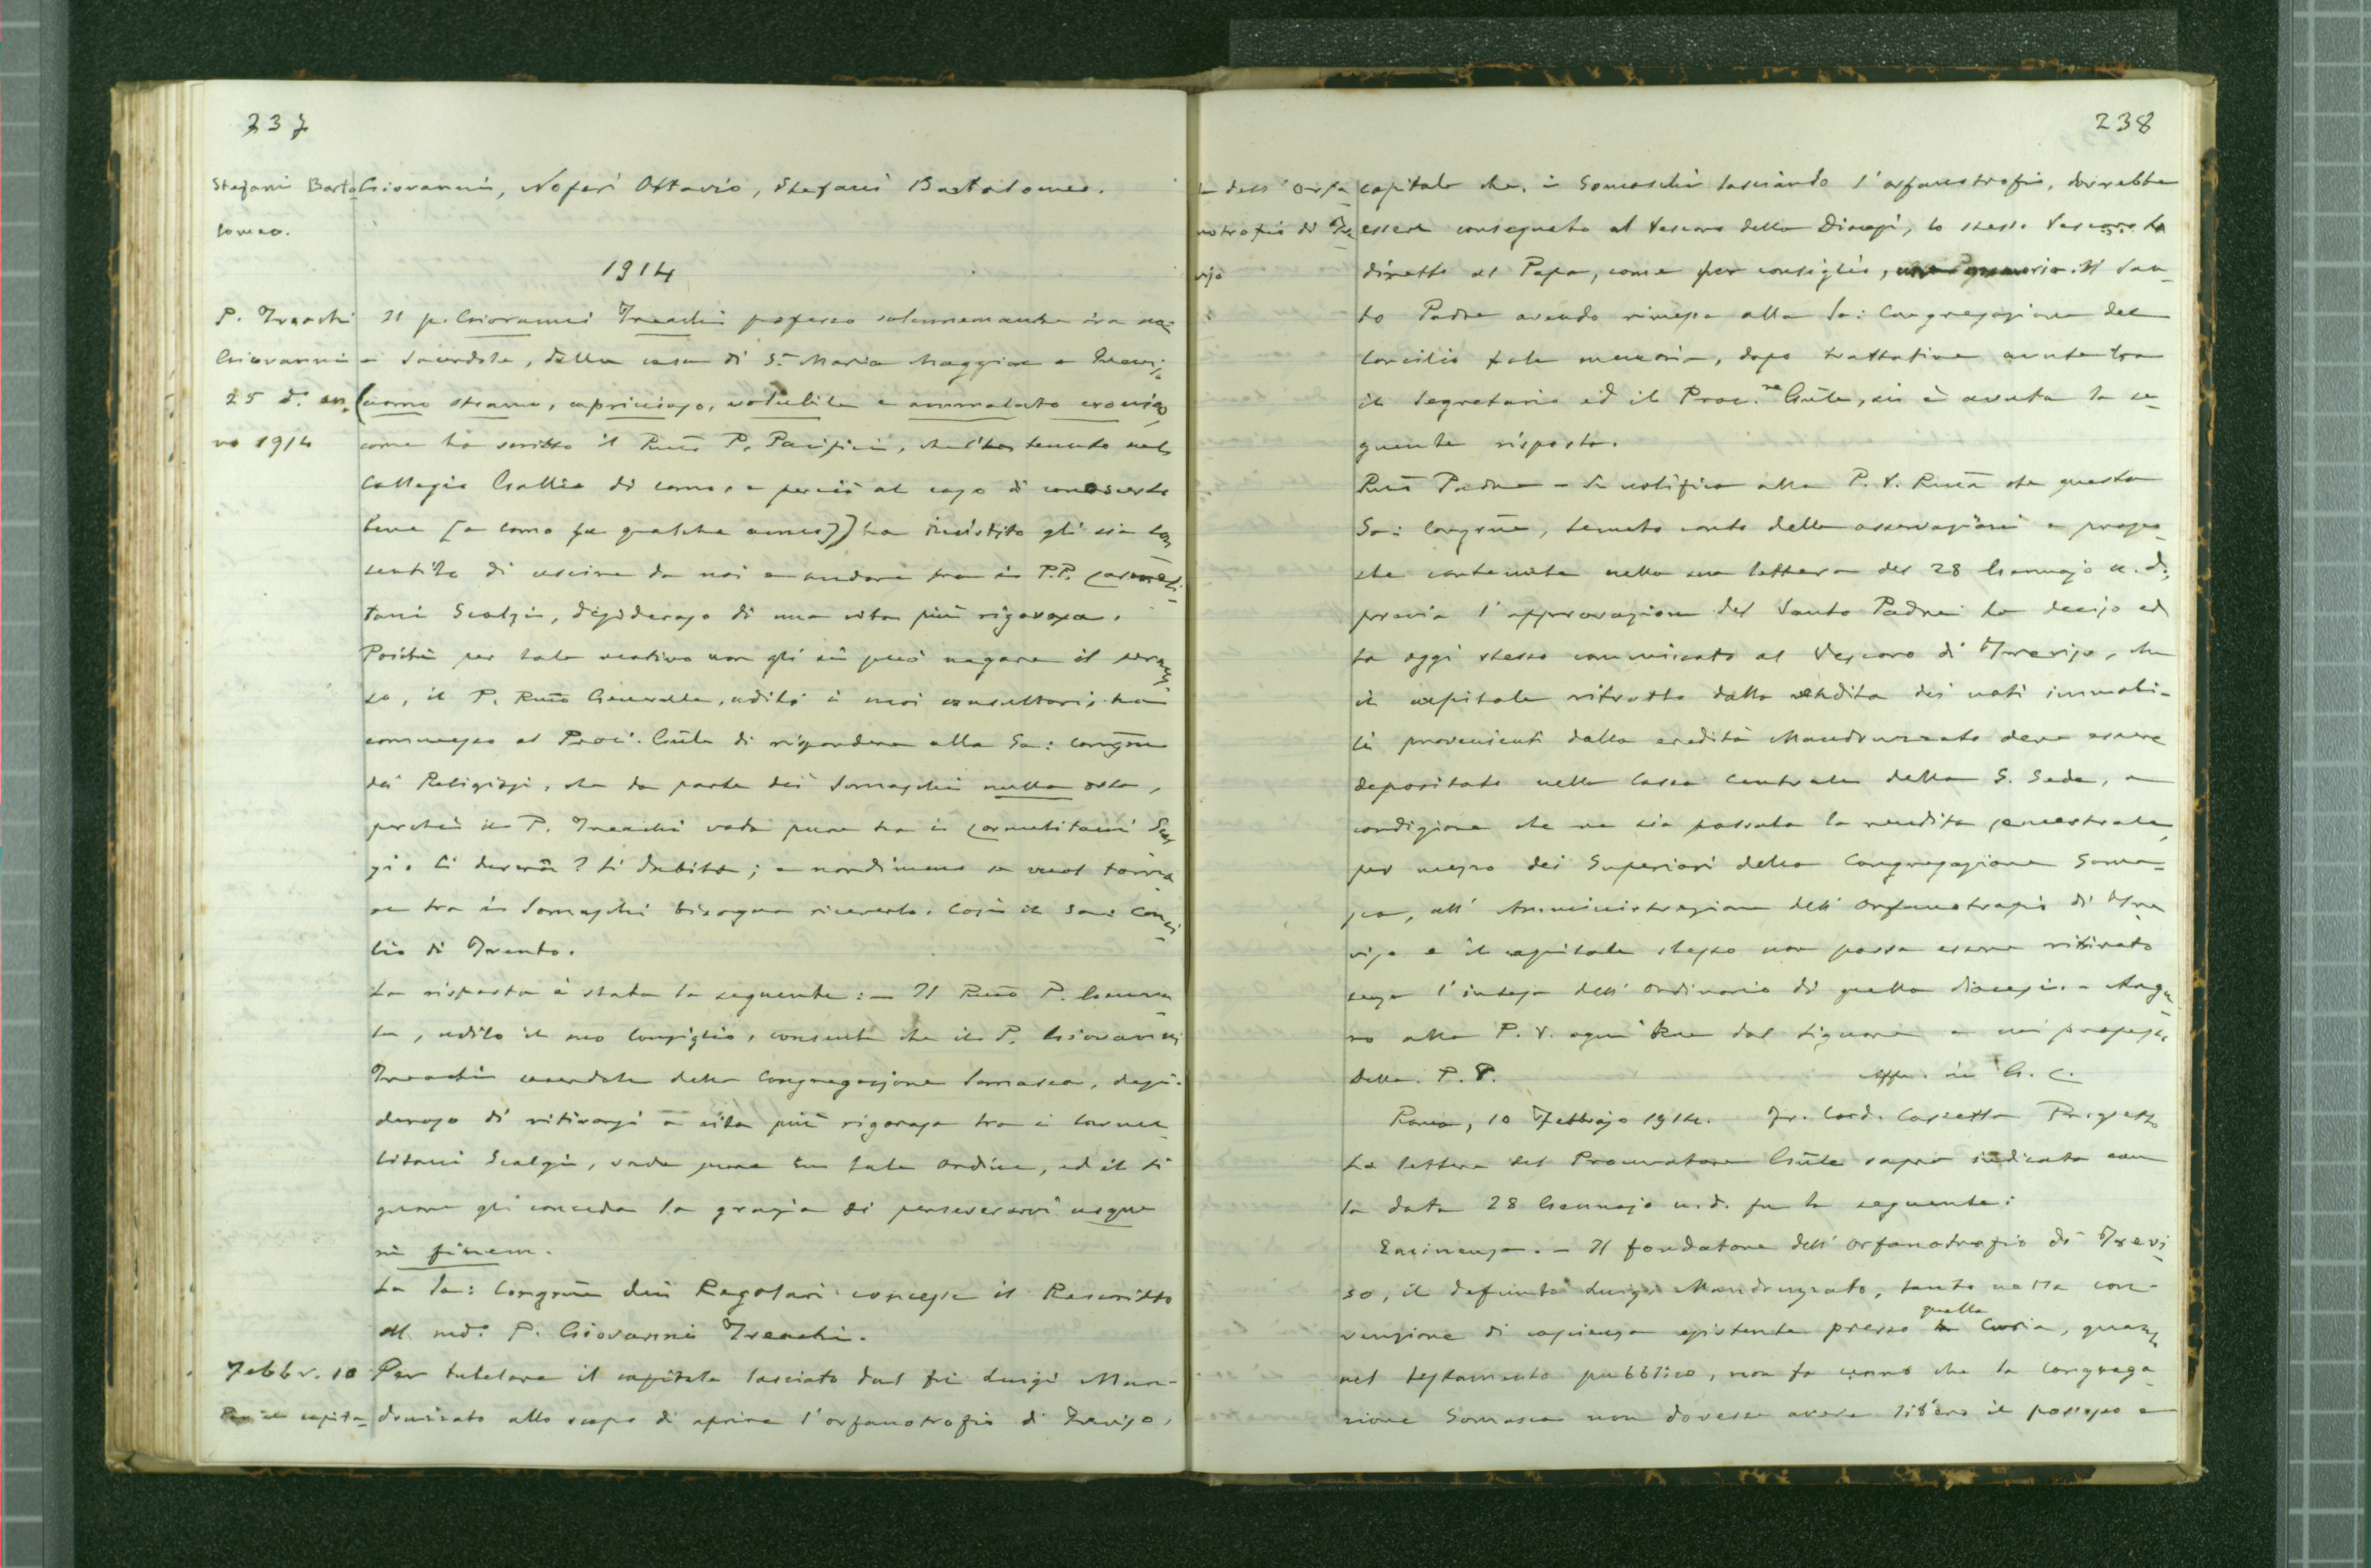 237
Stefani Barto
lomeo.
Giovanni, Noferi Ottavio, Stefani Bartolomeo.
1914
P. Treachi
Giovanni
25 d. en.
no 1914
Il p. Giovanni Treachi professo solennemente tra noi
e Sacerdote, della casa di S. Maria Maggiore a Trevi-
(uomo strano, capriccioso, volubile e ammalato cronico,
come ha scritto il Rmo P. Pacifici, che l'ha tenuto nel
Collegio Gallio di Como, e perciò al caso di conoscerlo
bene [a Como fu qualche anno]) ha insistito gli sia con
sentito di uscire da noi e andare tra i P.P. Carmeli-
tani Scalzi, desideroso di una vita più rigorosa.
Poichè per tale motivo non gli si può negare il permes-
so, il P. Rmo Generale, uditi i suoi consultori, ha
commesso al Proc. Gnle di rispondere alla Sa: Congne
dei Religiosi, che da parte dei Somaschi nulla osta,
perchè il P. Treachi vada pure tra i Carmelitani Scal
zi. Ci durerà? Si dubita; e nondimeno se vuol torna
re tra i Somaschi bisogna riceverlo. Così il Sa: Conci
lio di Trento.
La risposta è stata la seguente: - Il Rmo P. Genera
le, udito il suo Consiglio, consente che il P. Giovanni
Treachi sacerdote della Congregazione Somasca, desi-
deroso di ritirarsi a vita più rigorosa tra i Carme-
litani Scalzi, vada pure in tale Ordine, ed il Si
gnore gli conceda la grazia di perseverarvi usque
in finem.
La Sa: Congrne dei Regolari concesse il Rescritto
al md. P. Giovanni Treachi.
Febbr. 10
capita
Per tutelare il capitale lasciato dal fu Luigi Man-
druzzato allo scopo di aprire l'orfanotrofio di Treviso,
238
le dell'Orfa
notrofio di Tre
viso
capitale che, i Somaschi lasciando l'orfanotrofio, dovrebbe
essere consegnato al Vescovo della Diocesi, lo stesso Vescovo ha
diretto al Papa, come per consiglio, una memoria. Il San-
to Padre avendo rimessa alla Sa: Congregazione del
Concilio tale memoria, dopo trattative avute tra
il Segretario ed il Proc.re Gnle, si è avuta la se-
guente risposta.
Rmo Padre - Si notifica alla P. V. Rma che questa
Sa: Congrne, tenuto conto delle osservazioni e propo
ste contenute nella sua lettera del 28 Gennajo u.d.,
previa l'approvazione del Santo Padre ha deciso ed
ha oggi stesso comunicato al Vescovo di Treviso, che
il capitale ritratto dalla vendita dei noti immobi-
li provenienti dalla eredità Mandruzzato deve essere
depositato nella Cassa Centrale della S. Sede, a
condizione che ne sia passata la rendita semestrale,
per mezzo dei Superiori della Congregazione Soma-
sca, all'Amministrazione dell'Orfanotrofio di Tre
viso e il capitale stesso non possa essere ritirato
senza l'intesa dell'Ordinario di quella diocesi. - Augu
ro alla P. V. ogni bene dal Signore e mi professo
Della. P. V. Affe. in G. C.
Roma, 10 Febbrajo 1914. Fr. Card. Cassetta Prefetto
La lettera del Procuratore Gnle sopra indicata con
la data 28 Gennajo u.d. fu la seguente:
Eminenza. - Il fondatore dell'Orfanotrofio di Trevi
so, il defunto Luigi Mandruzzato, tanto nella con-
quella
venzione di esistente presso la Curia, quanto
nel testamento pubblico, non fa cenno che la Congrega
zione Somasca non dovesse avere libero il possesso e